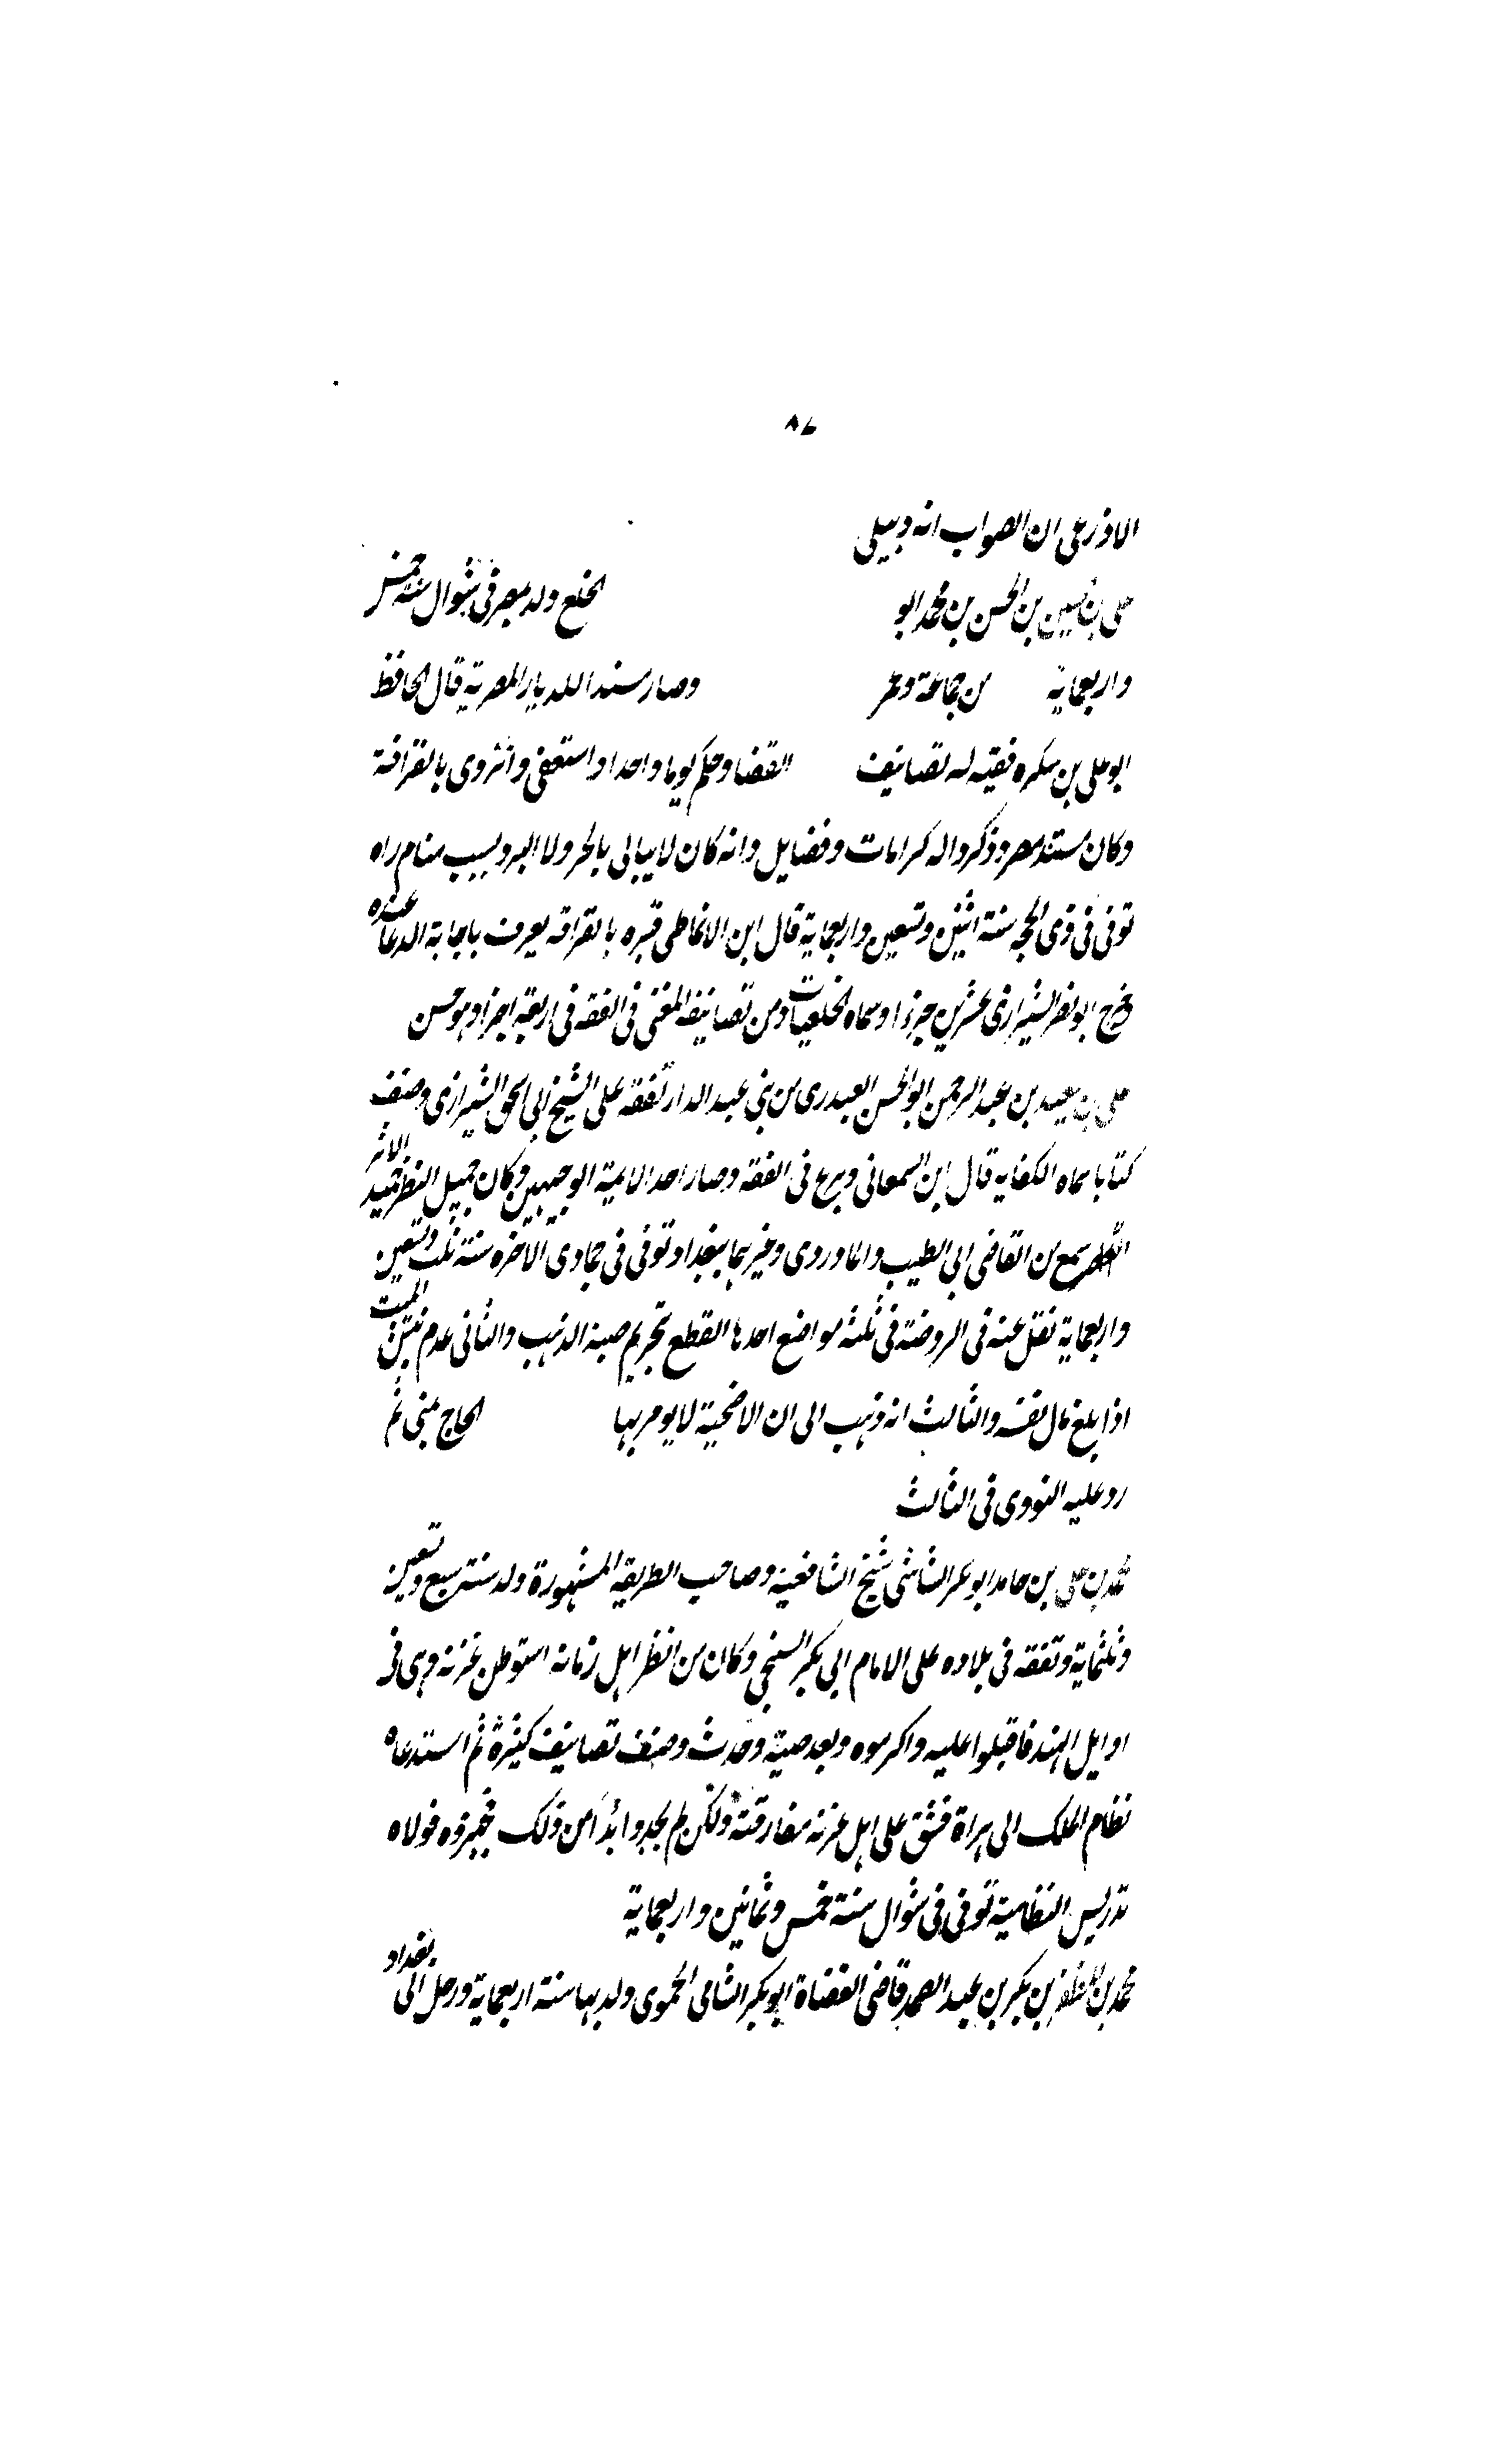 ٨٧
الاذرعلى ان الصواب انه دبيلى
على بن حسين بن الحسن بن محمد ابو الخلع ولد بمصر فى شوال سنة خمس
واربعماية من جماعة وعمر وصار سند الديار المصرية قال الحافظ
ابو على بن سكره فقيه له تصانيف القضا وحكم يوما واحدا واستعفى وانزوى بالقرافة
وكان مسند مصر وذكروا له كرامات وفضايل وانه كان لا يبالى بالحر ولا البرد بسبب منام راه
توفى فى ذى الحجه سنة اثنين وتسعين واربعماية قال ابن الانماطى قبره بالقرافه يعرف باجابة الدعا عنده
خرج ابو نصر الشيرازى عشرين جزءا وسماه الخلعيات ومن تصانيفه المغنى فى الفقه فى اربعة اجزا وهو حسن
على بن سعيد بن عبد الرحمن ابو الحسن العبدرى من بنى عبد الدار تفقه على الشيخ ابى اسحق الشيرازى وصنف
كتابا سماه الكفايه قال ابن السمعانى وبرع فى الفقه وصار احد الايمة الوجيهين وكان جميل النظر حميد الاثر
سمع من القاضى ابى الطيب والماوردى وغيرهما ببغداد توفى فى جمادى الاخره سنة ثلث وتسعين
واربعماية نقل عنه فى الروضة فى ثلثه مواضع احدها القطع بتحريم ضبة الذهب والثانى عدم نبش الميت
اذا بلغ مال نفسه والثالث انه ذهب الى ان الاضحية لا يومر بها الحاج بمنى ثم
رد عليه النووى فى الثالث
محمد بن على بن حامد ابو بكر الشاشى شيخ الشافعية وصاحب الطريقه المشهورة ولد سنة سبع وتسعين
وثلثماية وتفقه فى بلاده على الامام ابى بكر السنجى وكان من انظر اهل زمانه استوطن غزنه وهى فى
اوايل الهند فاقبلوا عليه واكرموه وبعد صيته وحدث وصنف تصانيف كثيرة ثم استدعاه
نظام الملك الى هراة فشق على اهل غزنه مفارقته ولكن لم يجدوا بدا من ذلك فجهزوه فولاه
تدريس النظامية توفى فى شوال سنة خمس وثمانين واربعماية
محمد بن المظفر بن بكر بن عبد الصمد قاضى القضاة ابو بكر الشامى الحموى ولد بها سنة اربعماية ورحل الى بغداد